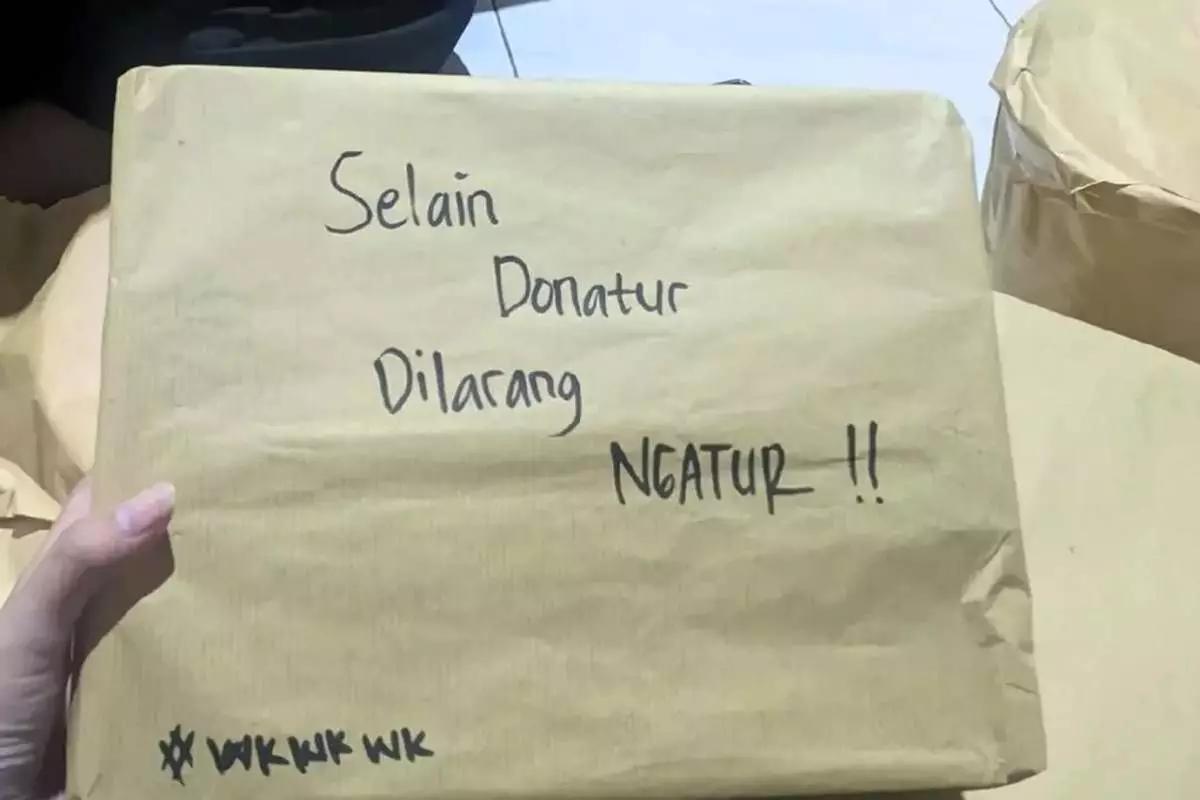 Selain
Donatur
Dilarang
NGATUR !!
* WKWKWK